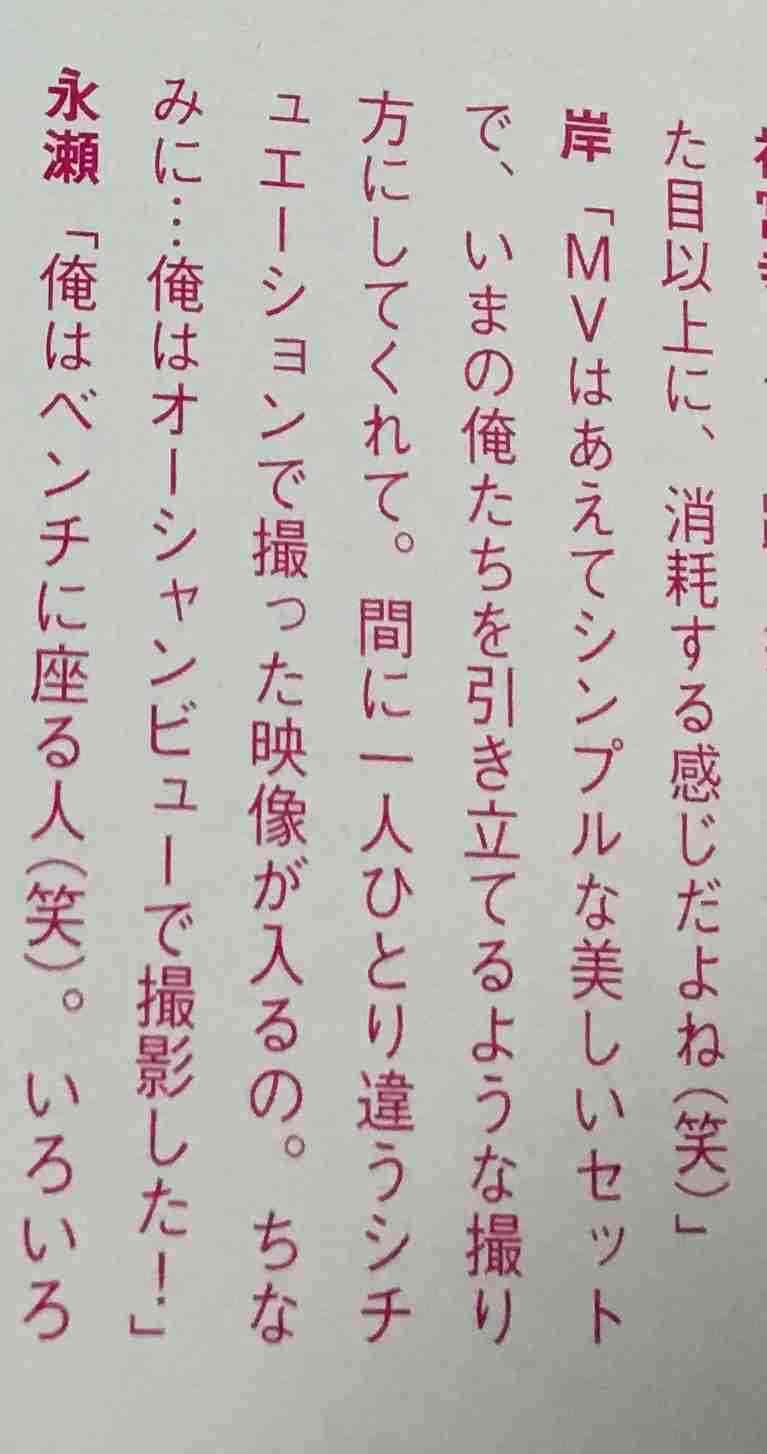 た目以上に、消耗する感じだよね(笑)」
岸「MVはあえてシンプルな美しいセット
で、いまの俺たちを引き立てるような撮り
方にしてくれて。間に一人ひとり違うシチ
ュエーションで撮った映像が入るの。ちな
みに…俺はオーシャンビューで撮影した！」
永瀬「俺はベンチに座る人(笑)。いろいろ